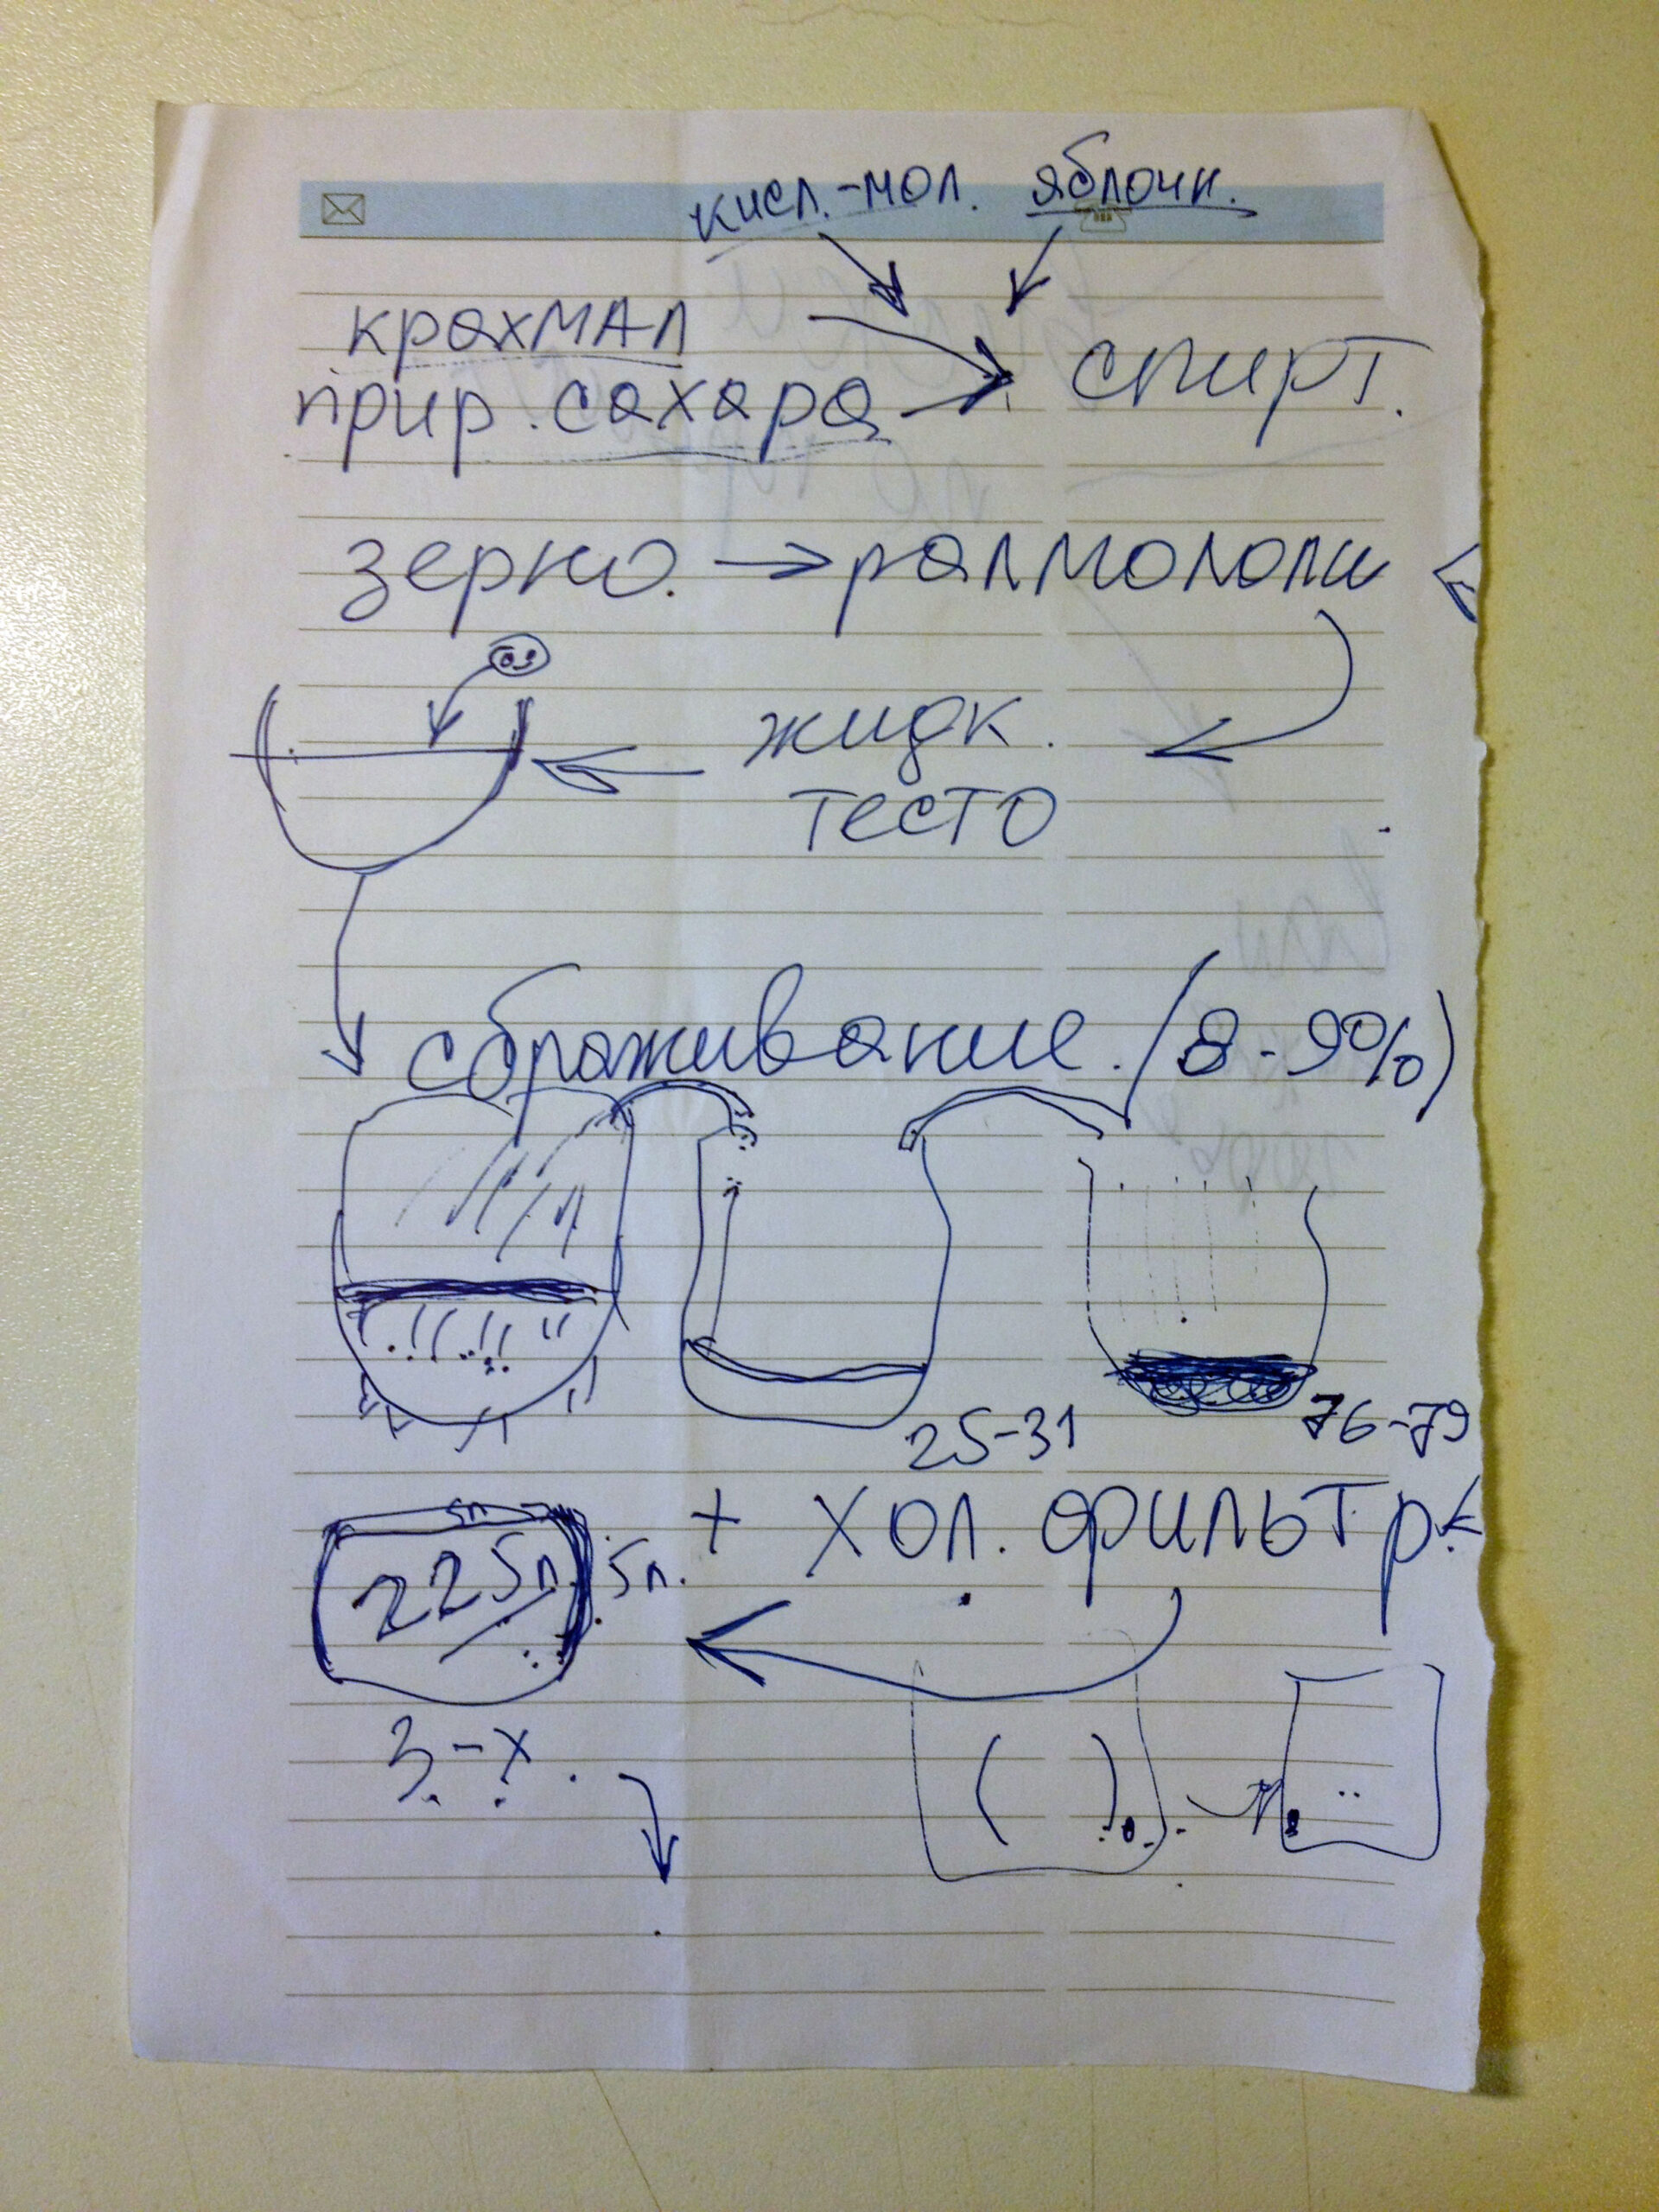 кисл.-мол. яблочн.
крахмал
прир. сахара → спирт.
зерно. → размололи
жидк.
тесто
сбраживание. (8-9%)
25-31
76-79
+ хол. фильтр.
5л
225л. 5л.
3-х.